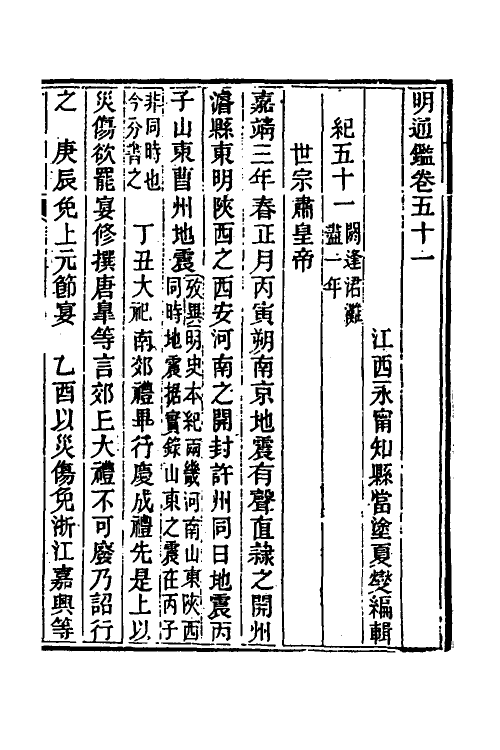 明通鑑卷五十一
江西永甯知縣當塗夏燮編輯
紀五十一
閼逢涒灘
盡一年
世宗肅皇帝
嘉靖三年春正月丙寅朔南京地震有聲直隸之開州
濬縣東明陝西之西安河南之開封許州同日地震丙
子山東曹州地震
攷異明史本紀兩畿河南山東陝西
同時地震據實錄山東之震在丙子
非同時也
今分書之
丁丑大祀南郊禮畢行慶成禮先是上以
災傷欲罷宴修撰唐臯等言郊上大禮不可廢乃詔行
之　庚辰免上元節宴　乙酉以災傷免浙江嘉興等